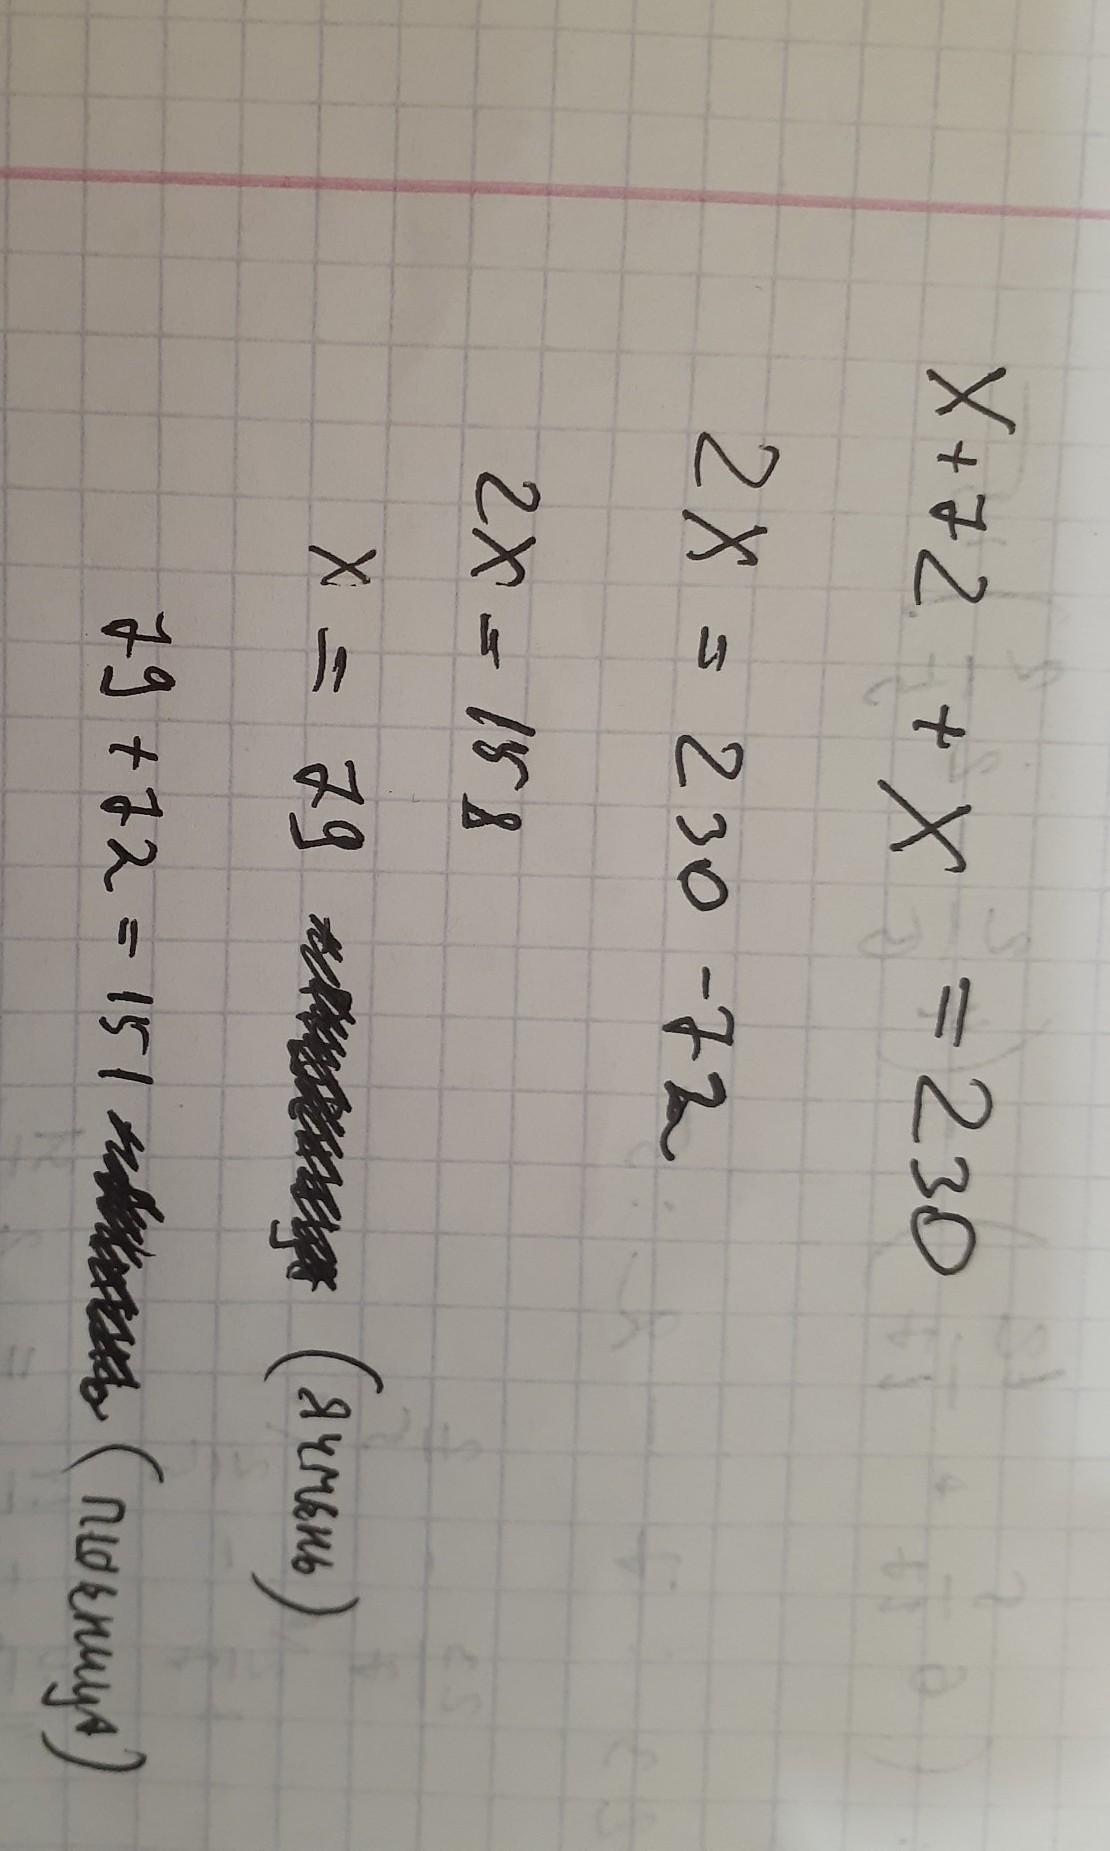 x+72+x=230
2x=230-72
2x=158
x=79 (ячмень)
79+72=151 (пшеница)